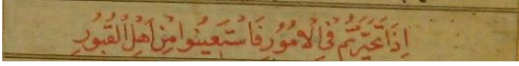 اِذَا تَحَيَّرْتُمْ فِي الْاُمُورِ فَاسْتَعِينُوا مِنْ اَهْلِ الْقُبُورِ